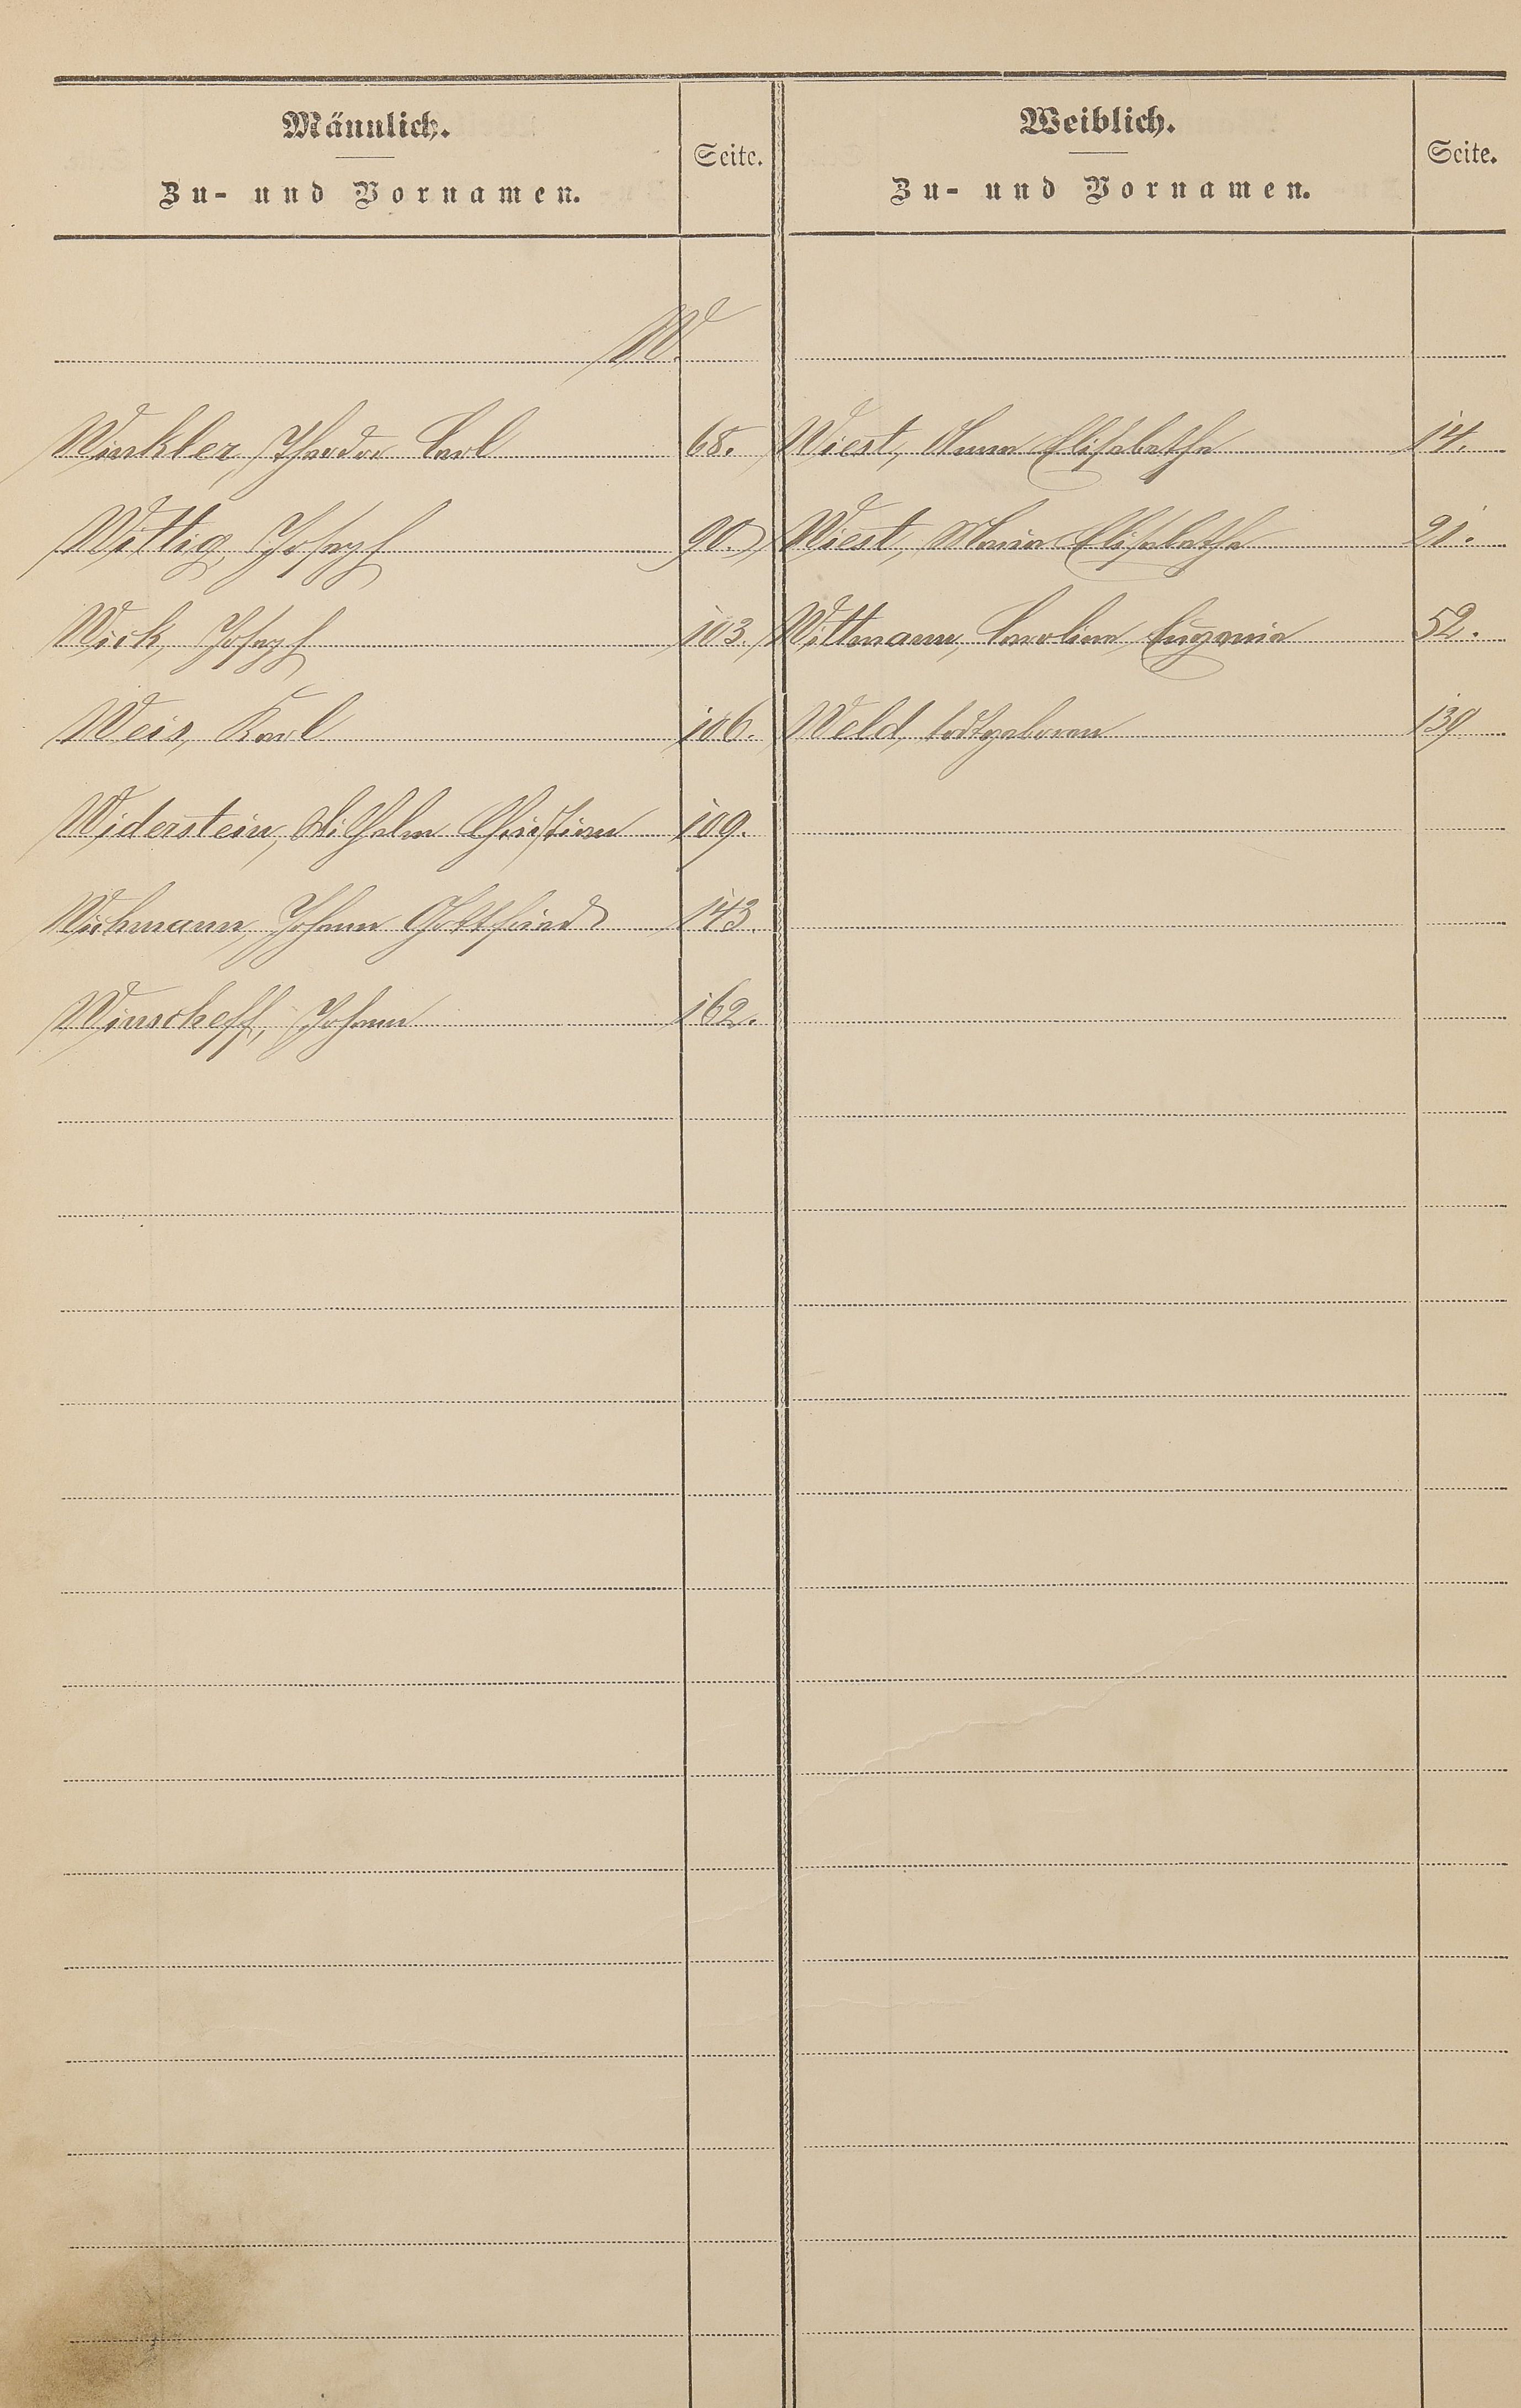 Männlich.
Zu- und Vornamen.
Seite.
Weiblich.
Zu- und Vornamen.
Seite.
W.
Winkler, Theodor Carl 68.
Wittig, Joseph 90.
Wick, Joseph 103.
Weis, Karl 106.
Widerstein, Wilhelm Christian 109.
Wichmann, Johann Gottfried 143.
Winscheff, Johann 162.
Wiest, Anna Elisabetha 14.
Wiest, Maria Elisabetha 21.
Wittmann, Carolina Eugenia 52.
Weld, todtgeboren 139